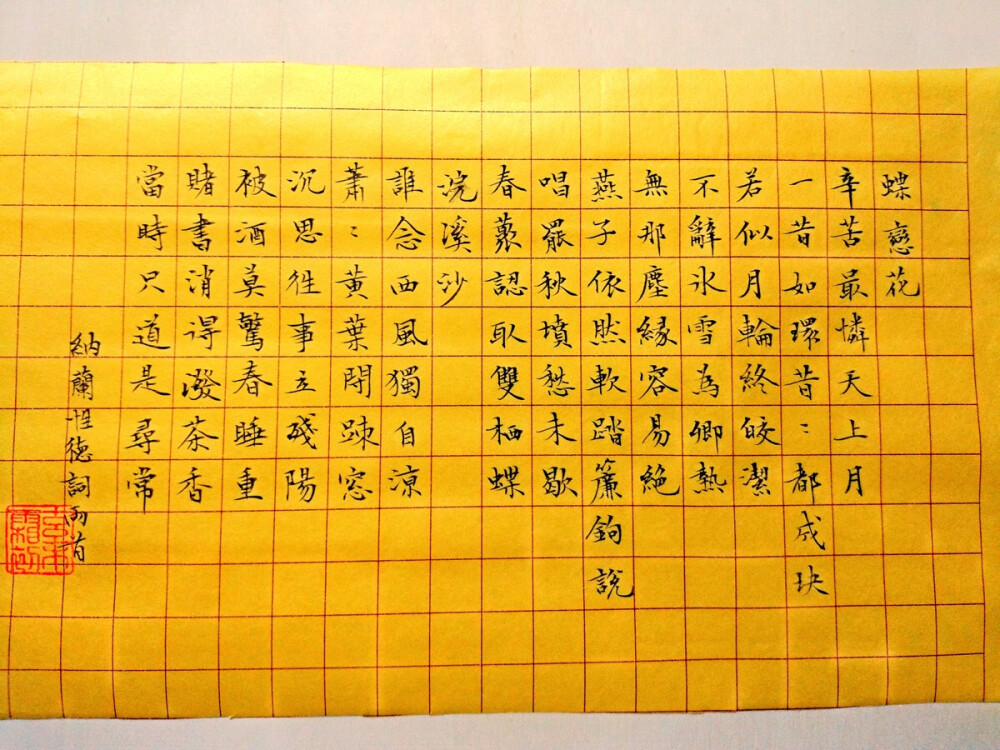 蝶戀花
辛苦最憐天上月
一昔如環昔〻都成玦
若似月輪終皎潔
不辭氷雪為卿熱
無那塵緣容易絕
燕子依然軟踏簾鉤說
唱罷秋墳愁未歇
春叢認取雙栖蝶
浣溪沙
誰念西風獨自涼
蕭〻黃葉閉疎窓
沉思往事立殘陽
被酒莫驚春睡重
賭書消得潑茶香
當時只道是尋常
納蘭性德詞兩首